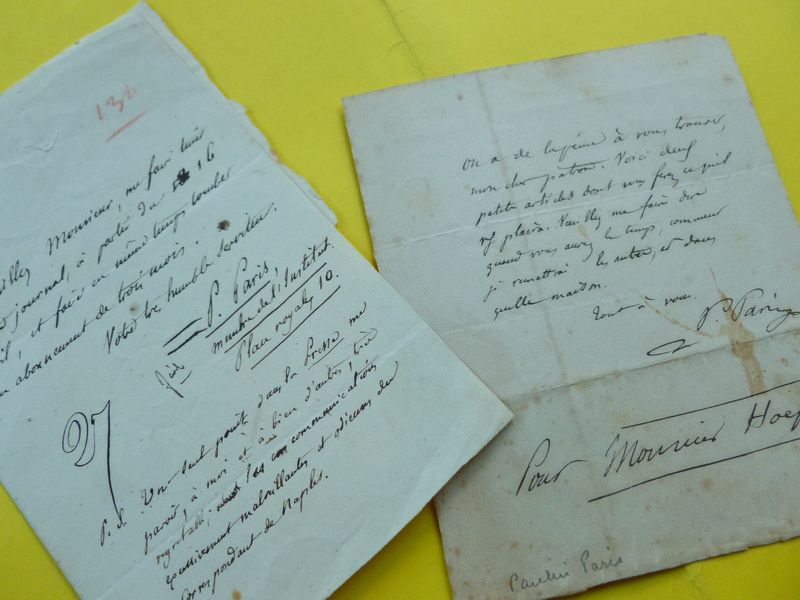 132
Monsieur, me faire tenir
journal, à partir du 16
et faire en même temps toucher
abonnement de trois mois.
Votre très humble serviteur.
P. Paris,
Membre de l'Institut.
Place royale, 10.
P. S. Un seul point dans la Presse me
paroit, à moi et à bien d'autres, très
regrettable; les communications
excessivement malveillantes et odieuses du
correspondant de Naples.
On a de la peine à vous trouver,
mon cher patron. Voici deux
petits articles dont vous ferez ce qu'il
vous plaira. Veuillez me faire dire
quand vous aurez le temps, comment
je remettrai les autres, et dans
quelle maison.
Tout à vous.
P. Paris
Pour Monsieur
Paulin Paris